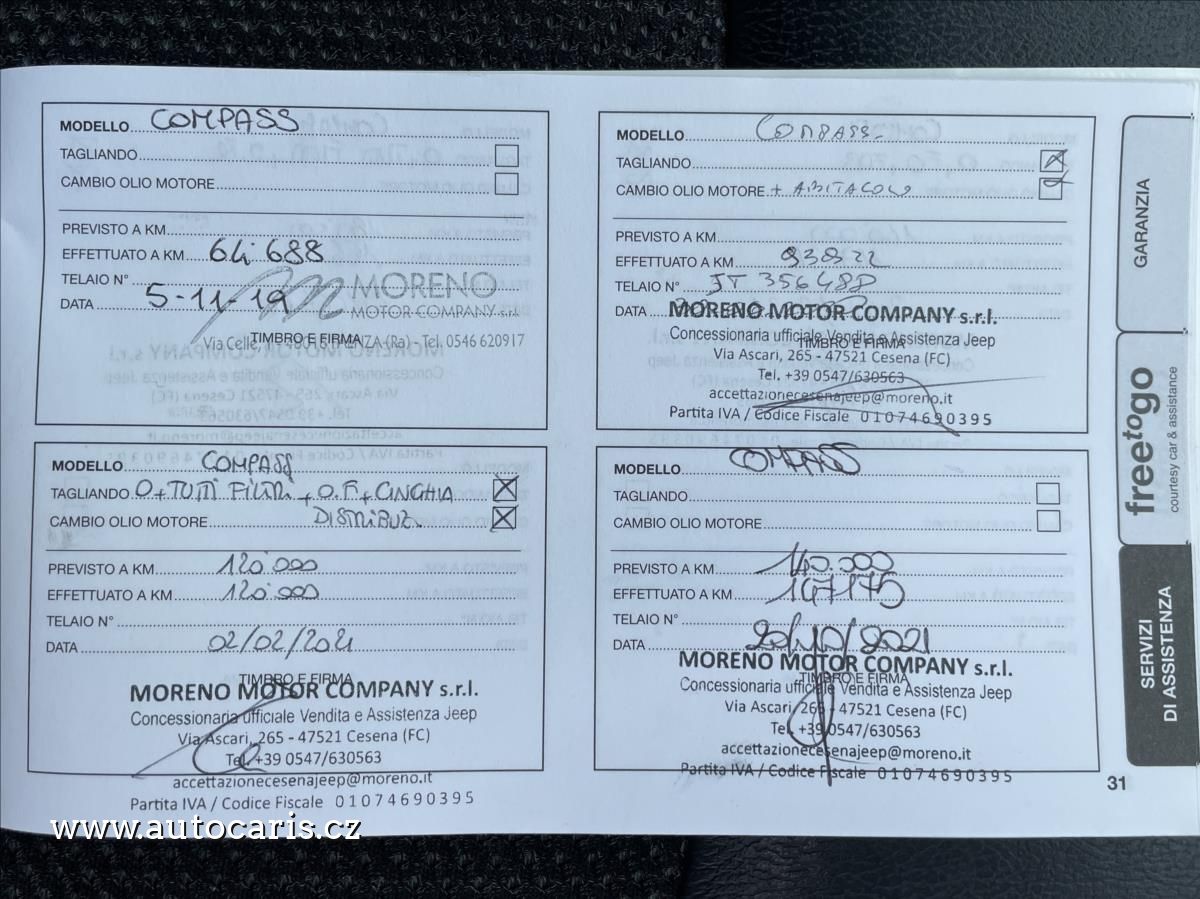 MODELLO COMPASS
TAGLIANDO
CAMBIO OLIO MOTORE
PREVISTO A KM
EFFETTUATO A KM 64.688
TELAIO N°
DATA 5-11-19
MORENO
MOTOR COMPANY s.r.l.
TIMBRO E FIRMA
Via Celle, (Ra) - Tel. 0546 620917
MODELLO COMPASS
TAGLIANDO
CAMBIO OLIO MOTORE + ABITACOLO
PREVISTO A KM
EFFETTUATO A KM 93822
TELAIO N° JT 356488
DATA
MORENO MOTOR COMPANY s.r.l.
TIMBRO E FIRMA
Concessionaria ufficiale Vendita e Assistenza Jeep
Via Ascari, 265 - 47521 Cesena (FC)
Tel. +39 0547/630563
accettazionecesenajeep@moreno.it
Partita IVA / Codice Fiscale 01074690395
MODELLO COMPASS
TAGLIANDO O+TUTTI FILTRI + O.F.+CINGHIA
CAMBIO OLIO MOTORE DISTRIBUZ.
PREVISTO A KM 120.000
EFFETTUATO A KM 120.000
TELAIO N°
DATA 02/02/2021
TIMBRO E FIRMA
MORENO MOTOR COMPANY s.r.l.
Concessionaria ufficiale Vendita e Assistenza Jeep
Via Ascari, 265 - 47521 Cesena (FC)
Tel. +39 0547/630563
accettazionecesenajeep@moreno.it
Partita IVA / Codice Fiscale 01074690395
MODELLO COMPASS
TAGLIANDO
CAMBIO OLIO MOTORE
PREVISTO A KM 140.000
EFFETTUATO A KM 147175
TELAIO N°
DATA 20/10/2021
MORENO MOTOR COMPANY s.r.l.
TIMBRO E FIRMA
Concessionaria ufficiale Vendita e Assistenza Jeep
Via Ascari, 265 - 47521 Cesena (FC)
Tel. +39 0547/630563
accettazionecesenajeep@moreno.it
Partita IVA / Codice Fiscale 01074690395
GARANZIA
freetogo
courtesy car & assistance
SERVIZI
DI ASSISTENZA
31
www.autocaris.cz